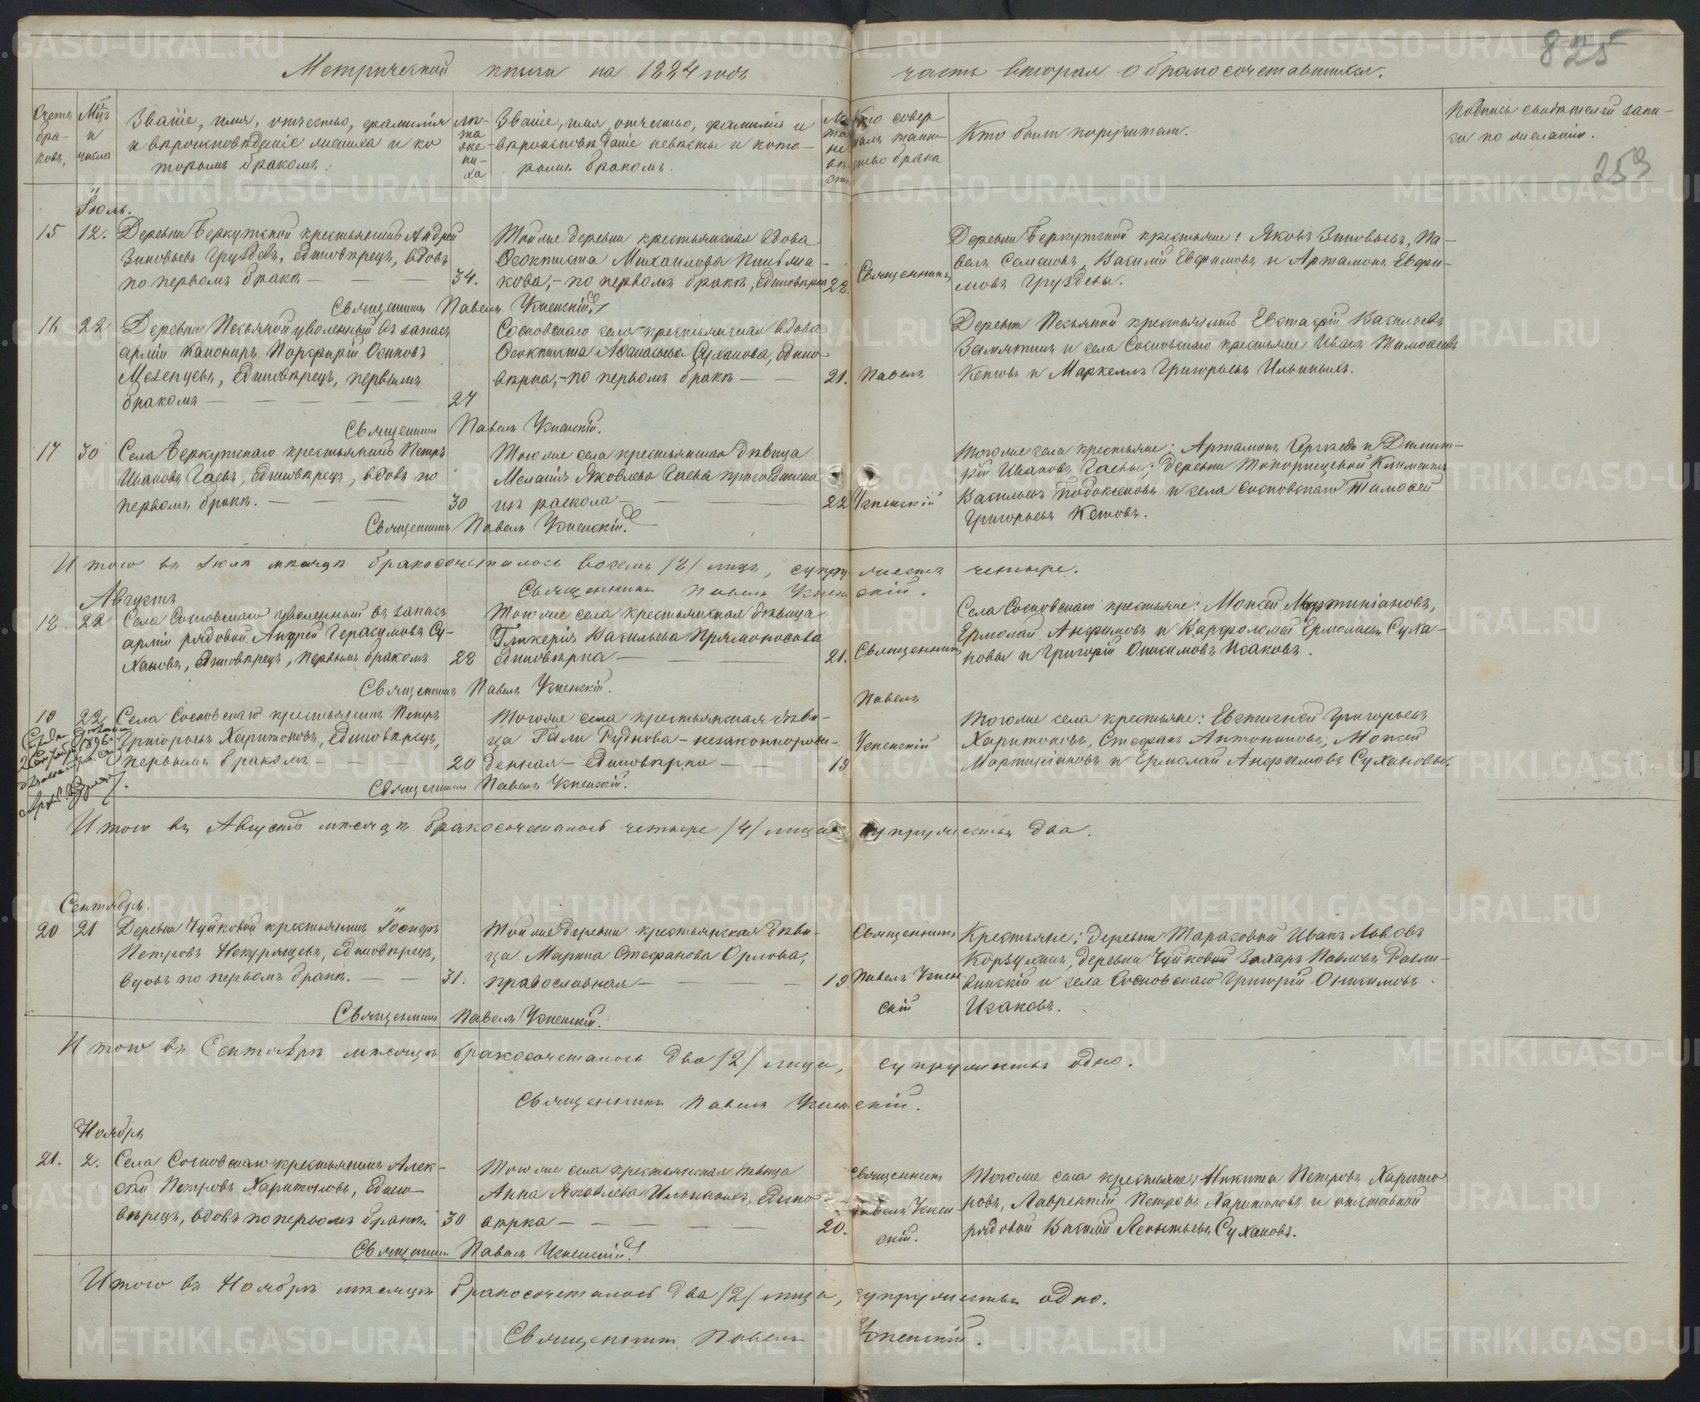 825
Метрической книги на 1884 годъ часть вторая о бракосочетавшихся.
Счетъ бра-ковъ,
Мѣс. и числа
Званіе, имя, отчество, фамилія
и вѣроисповѣданіе жениха и ко
торымъ бракомъ.
Лѣ-та же-ни-ха
Званіе, имя отчество, фамилія и
вѣроисповѣданіе невѣсты и кото-
рымъ бракомъ.
Кто совер
шалъ таин-
ство брака
Кто были поручители.
Подпись свидѣтелей запи-
си по желанію.
259
Іюль.
15 12. Деревни Беркутской крестьянинъ Андрей
Зиновьевъ Груздевъ, единовѣрецъ, вдовъ
по первомъ бракѣ 34.
Той же деревни крестьянская вдова
Ѳеоктиста Михайлова Письма-
кова, по первомъ бракѣ, единовѣрка 28.
Священникъ
Деревни Беркутской крестьяне: Яковъ Зиновьевъ, Па-
велъ Семеновъ, Василій Евфимовъ и Артамонъ Евфи-
мовъ Груздевы.
Священникъ Павелъ Успенскій.
16 22 Деревни Песьяной уволенный въ запасъ
арміи канониръ Порфирій Осиповъ
Мезенцевъ, единовѣрецъ, первымъ
бракомъ 27
Сосновскаго села крестьянская вдова
Ѳеоктиста Аѳанасьева Суханова, едино-
вѣрка, по первомъ бракѣ 21.
Павелъ
Деревни Песьяной крестьянинъ Евстафій Васильевъ
Замятинъ и села Сосновскаго крестьяне Иванъ Тимоѳеевъ
Кетовъ и Маркеллъ Григорьевъ Ильиныхъ.
Священникъ Павелъ Успенскій.
17 30 Села Беркутскаго крестьянинъ Петръ
Ивановъ Гаевъ, единовѣрецъ, вдовъ по
первомъ бракѣ. 30
Того же села крестьянская дѣвица
Меланія Яковлева Гаева присоединена
изъ раскола 22
Успенскій
Того же села крестьяне: Артамонъ Сергѣевъ и Димит-
рій Ивановъ Гаевы; деревни Топорищевой Климентъ
Васильевъ Подоксеновъ и села Сосновскаго Тимоѳей
Григорьевъ Кетовъ.
Священникъ Павелъ Успенскій.
Итого въ Іюлѣ мѣсяцѣ бракосочеталось восемь /8/ лицъ, супружествъ четыре.
Священникъ Павелъ Успенскій.
Августъ
18 22 Села Сосновскаго уволенный въ запасъ
арміи рядовой Андрей Герасимовъ Су-
хановъ, единовѣрецъ, первымъ бракомъ 28
Того же села крестьянская дѣвица
Гликерія Васильева Прямоносова
единовѣрка 21.
Священникъ
Села Сосновскаго крестьяне: Моисей Мартиніановъ,
Ермолай Анфимовъ и Варфоломей Ермолаевъ Суха-
новы и Григорій Онисимовъ Исаковъ.
Священникъ Павелъ Успенскій.
Павелъ
19 22 Села Сосновскаго крестьянинъ Петръ
Григорьевъ Харитоновъ, единовѣрецъ,
первымъ бракомъ 20
Того же села крестьянская дѣви-
ца Гали Руднова незаконнорож-
денная единовѣрка 19
Успенскій
Того же села крестьяне: Евгений Григорьевъ
Харитоновъ, Стефанъ Антониновъ, Моисей
Мартиніановъ и Ермолай Анфимовъ Сухановы.
Священникъ Павелъ Успенскій.
Итого въ Августѣ мѣсяцѣ бракосочеталось четыре /4/ лица супружества два.
Сентябрь.
20 21 Деревни Чуйковой крестьянинъ Іосифъ
Петровъ Некурящевъ, единовѣрецъ,
вдовъ по первомъ бракѣ. 31.
Той же деревни крестьянская дѣви-
ца Марина Стефанова Орлова,
православная 19
Священникъ
Павелъ Успен
скій
Крестьяне: деревни Тарасовой Иванъ Львовъ
Коркунинъ, деревни Чуйковой Захаръ Павловъ
и села Сосновскаго Григорій Онисимовъ
Исаковъ.
Священникъ Павелъ Успенскій.
Итого въ Сентябрѣ мѣсяцѣ бракосочеталось два /2/ лица, супружество одно.
Священникъ Павелъ Успенскій.
Ноябрь
21. 2. Села Сосновскаго крестьянинъ Алек-
сѣй Петровъ Харитоновъ, едино-
вѣрецъ, вдовъ по первомъ бракѣ. 30
Того же села крестьянская дѣвица
Анна Яковлева Ильиныхъ, едино-
вѣрка 20.
Священникъ
Павелъ Успен
скій.
Того же села крестьяне: Никита Петровъ Харито
новъ, Лаврентій Петровъ Харитоновъ и отставной
рядовой Василій Леонтьевъ Сухановъ.
Священникъ Павелъ Успенскій.
Итого въ Ноябрѣ мѣсяцѣ бракосочеталось два /2/ лица, супружество одно.
Священникъ Павелъ Успенскій.
METRIKI.GASO-URAL.RU